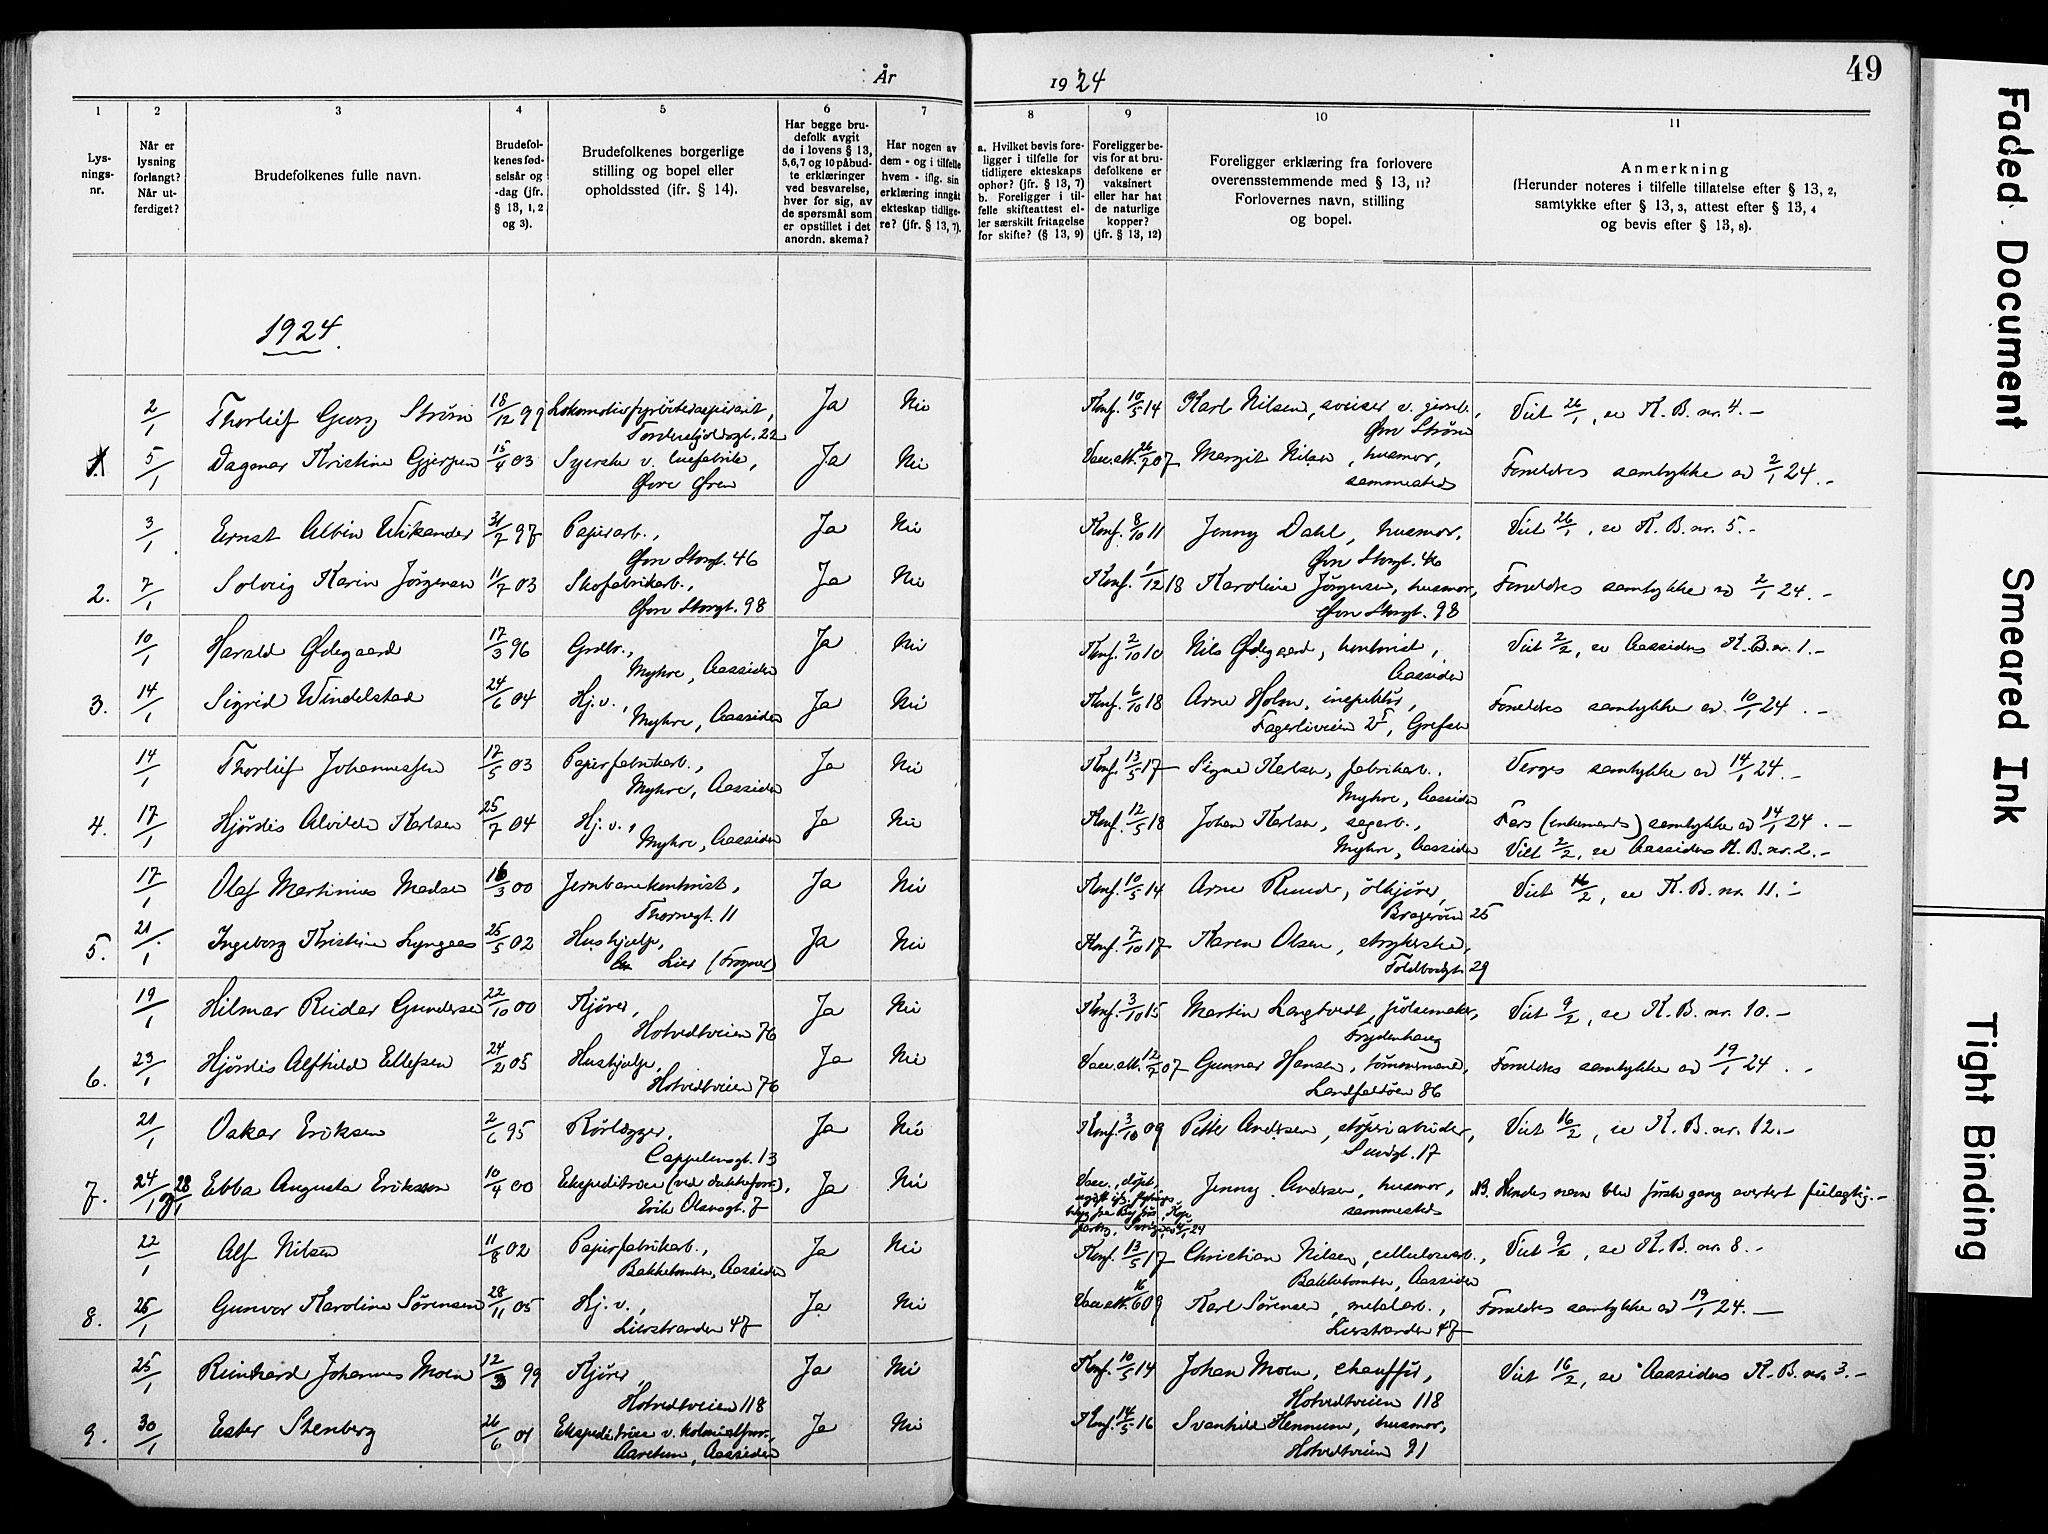 År 1924
49
1
2
3
4
5
6
7
8
9
10
11
Lys-
nings-
nr.
Når er
lysning
forlangt?
Når ut-
ferdiget?
Brudefolkenes fulle navn.
Brudefol-
kenes fød-
selsår og
-dag (jfr.
§ 13, 1, 2
og 3).
Brudefolkenes borgerlige
stilling og bopel eller
opholdssted (jfr. § 14).
Har begge bru-
defolk avgit
de i lovens § 13,
5,6,7 og 10 påbud-
te erklæringer
ved besvarelse,
hver for sig, av
de spørsmål som
er opstillet i det
anordn. skema?
Har nogen av
dem - og i tilfelle
hvem - iflg. sin
erklæring inngåt
ekteskap tidlige-
re? (jfr. § 13, 7).
a. Hvilket bevis fore-
ligger i tilfelle for
tidligere ekteskaps
ophør? (jfr. § 13, 7)
b. Foreligger i til-
felle skifteattest el-
ler særskilt fritagelse
for skifte? (§ 13, 9)
Foreligger be-
vis for at bru-
defolkene er
vaksinert
eller har hat
de naturlige
kopper?
(jfr. § 13, 12)
Foreligger erklæring fra forlovere
overensstemmende med § 13, 11?
Forlovernes navn, stilling
og bopel.
Anmerkning
(Herunder noteres i tilfelle tillatelse efter § 13, 2,
samtykke efter § 13, 3, attest efter § 13, 4
og bevis efter § 13, 8).
1924.
2/1 Thorleif Georg Strøm 18/12 99 Lokomotivfyrbøteraspirant, Ja Nei Konf. 10/5 14 Karl Nilsen, sveiser v. jernb., Viet 26/1, se K. B. nr. 4. -
Tordenskjoldsgt. 22 Øvre Strøm
5/1 Dagmar Kristine Gjerpen 15/4 03 Syerske v. Ja Nei Vacc. att. 26/7 07 Margit Nilsen, husmor, Foreldres samtykke av 2/1 24. -
Øvre Øren sammesteds
3/1 Ernst Albin Wikander 31/7 97 Papirarb., Ja Nei Konf. 8/10 11 Jenny Dahl, husmor, Viet 26/1, se K. B. nr. 5. -
Øvre Storgt. 46 Øvre Storgt. 46
2. 7/1 Solveig Karin Jørgensen 11/7 03 Skofabrikarb., Ja Nei Konf. 1/12 18 Karoline Jørgensen, husmor, Foreldres samtykke av 2/1 24. -
Øvre Storgt. 98 Øvre Storgt. 98
10/1 Harald Ødegaard 17/3 96 Grdbr., Ja Nei Konf. 2/10 10 Nils Ødegaard, kontorist, Viet 2/2, se Aassidens K. B. nr. 1. -
Myhre, Aassiden Aassiden
3. 14/1 Sigrid Windelstad 24/6 04 Hj. v., Ja Nei Konf. 6/10 18 Arne Holm, inspektør, Foreldres samtykke av 10/1 24. -
Myhre, Aassiden Fagerliveien Grefsen
14/1 Thorleif Johannessen 17/5 03 Papirfabrikarb., Ja Nei Konf. 13/5 17 Signe Karlsen, fabrikarb., Verges samtykke av 14/1 24. -
Myhre, Aassiden Myhre, Aassiden
4. 17/1 Hjørdis Alvilde Karlsen 25/7 04 Hj. v., Ja Nei Konf. 12/5 18 Johan Karlsen, sagarb., Fars (enkemands) samtykke av 14/1 24. -
Myhre, Aassiden Myhre, Aassiden Viet 2/2, se Aassidens K. B. nr. 2. -
17/1 Olaf Martinius Madsen 16/3 00 Jernbanekontorist, Ja Nei Konf. 10/5 14 Arne Ruud, ølkjører, Viet 16/2, se K. B. nr. 11. -
Thornegt. 11 Bragerøen 25
5. 21/1 Ingeborg Kristine Lyngaas 25/5 02 Hushjelp, Ja Nei Konf. 7/10 17 Karen Olsen, strykerske,
Lier (Frogner) Toldbodgt. 29
19/1 Hilmar Reidar Gundersen 22/10 00 Kjører, Ja Nei Konf. 3/10 15 Martin Langtvedt, pølsemaker, Viet 9/2, se K. B. nr. 10. -
Hotvedtveien 76 Frydenhaug
6. 23/1 Hjørdis Alfhild Ellefsen 24/2 05 Hushjelp, Ja Nei Vacc. att. 12/7 07 Gunnar Hansen, tømmermand, Foreldres samtykke av 19/1 24. -
Hotvedtveien 76 Landfaldøen 86
21/1 Oskar Eriksen 2/6 95 Rørlægger, Ja Nei Konf. 3/10 09 Petter Andersen, støperiarbeider, Viet 16/2, se K. B. nr. 12. -
Cappelensgt. 13 Sundgt. 17
7. 24/1 28/1 Ebba Augusta Eriksson 10/4 00 Ekspeditrice (ved dukkeforr.), Ja Nei Vacc., Jenny Andersen, husmor, NB. Hendes navn blev første gang avertert feilagtig. -
Erik Olsensgt. 7 sammesteds
22/1 Alf Nilsen 11/8 02 Papirfabrikarb., Ja Nei Konf. 13/5 17 Christian Nilsen, cellulosearb., Viet 9/2, se K. B. nr. 8. -
Bakketomten, Aassiden Bakketomten, Aassiden
8. 25/1 Gunvor Karoline Sørensen 28/11 05 Hj. v., Ja Nei Vacc. att. 16/6 09 Karl Sørensen, metalarb., Foreldres samtykke av 19/1 24. -
Lierstranden 47 Lierstranden 47
25/1 Reinhard Johannes Moen 12/3 99 Kjører, Ja Nei Konf. 10/5 14 Johan Moen, chauffør, Viet 16/2, se Aassidens K. B. nr. 3. -
Hotvedtveien 118 Hotvedtveien 118
9. 30/1 Ester Stenberg 26/6 01 Ekspeditrice v. kolonialforr., Ja Nei Konf. 14/5 16 Svanhild Hennum, husmor,
Aaretun, Aassiden Hotvedtveien 91
Faded Document
Smeared Ink
Tight Binding